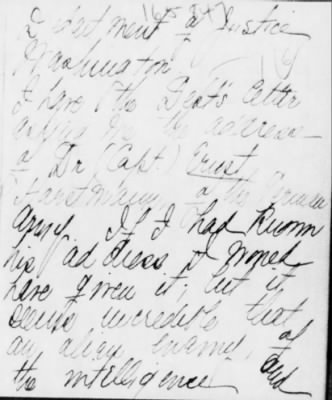 Department of Justice
Washington
I have the Dept's letter
asking me the address
of Dr (Capt.) Ernst
of the German
Army. If I had known
his address I would
have given it; but it
seems incredible that
an alien enemy, of
the intelligence and